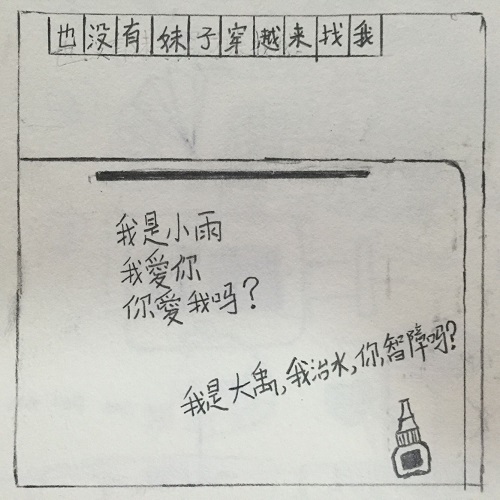 也没有妹子穿越来找我
我是小雨
我愛你
你愛我吗?
我是大禹,我治水,你智障吗?